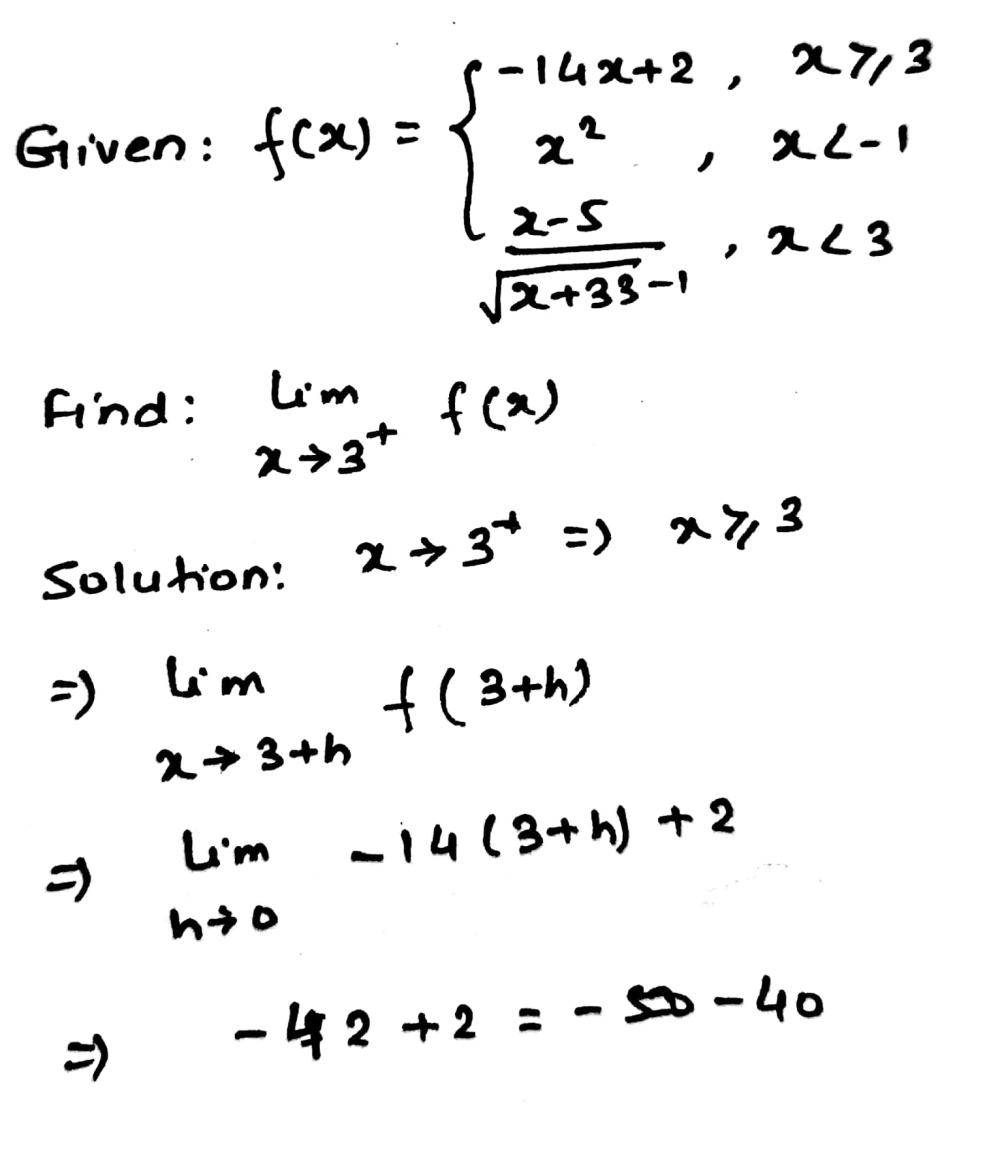 Given: f(x) = { -14x+2 , x ≥ 3
x² , x < -1
x-5 / √x+33 -1 , x < 3
Find: lim x→3⁺ f(x)
Solution: x → 3⁺ => x ≥ 3
=> lim x→3+h f(3+h)
=> lim h→0 -14(3+h) +2
=> -42 +2 = - -40